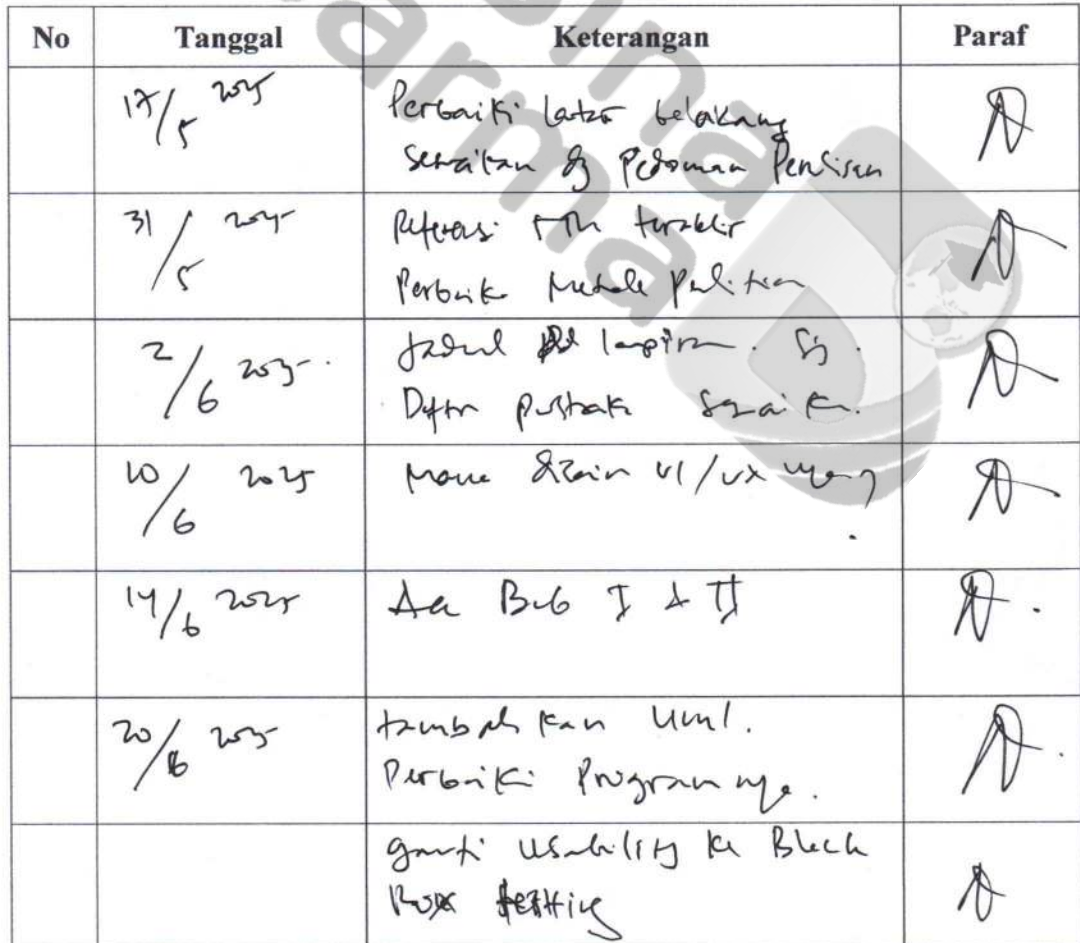 No Tanggal Keterangan Paraf
17/5 2025 Perbaiki latar belakang
sesuaikan dg Pedoman Penulisan
31/5 2025 Referensi 5 Th terakhir
Perbaiki Metode Penelitian
2/6 2025. Jadwal lampiran.
Daftar pustaka sesuaikan.
10/6 2025 Mana desain UI/UX nya
14/6 2025 Acc Bab I & II
20/6 2025 tambahkan UML.
Perbaiki Programnya.
ganti Usability ke Black
Box testting